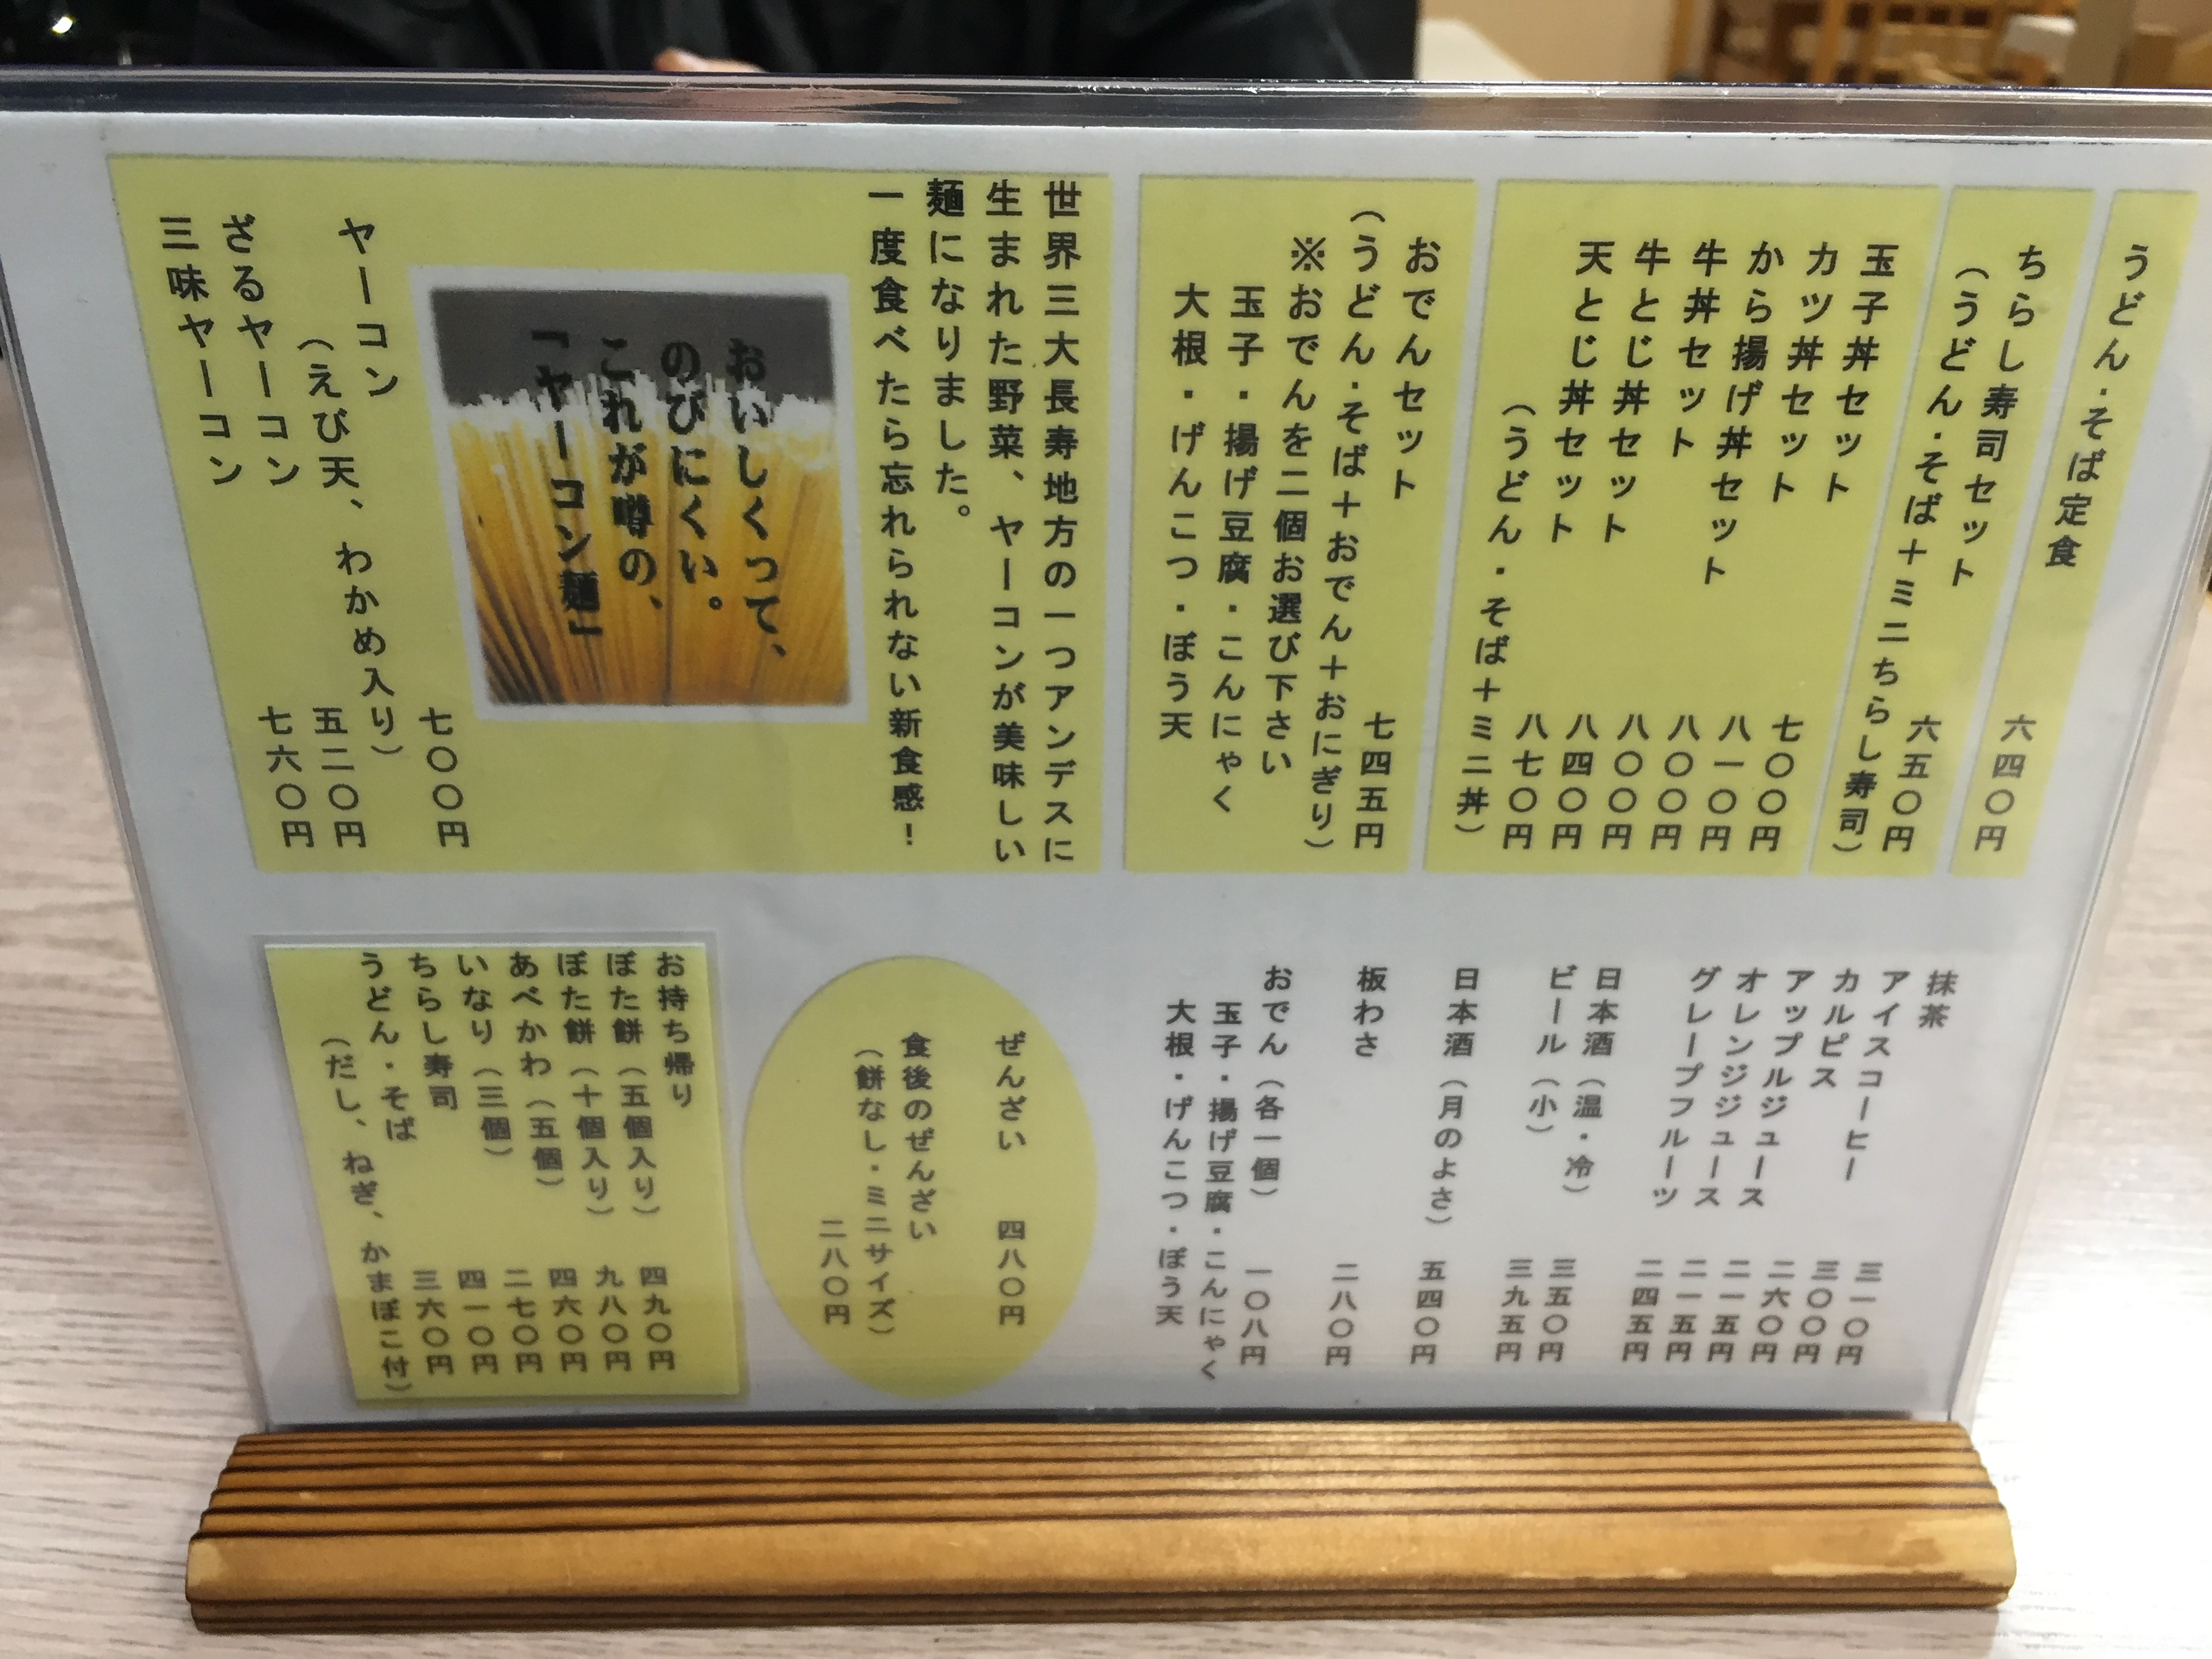 うどん・そば定食 六四〇円
ちらし寿司セット 六五〇円
(うどん・そば＋ミニちらし寿司)
玉子丼セット 七〇〇円
カツ丼セット 八一〇円
から揚げ丼セット 八〇〇円
牛丼セット 八〇〇円
牛とじ丼セット 八四〇円
天とじ丼セット 八七〇円
(うどん・そば＋ミニ丼)
おでんセット 七四五円
(うどん・そば＋おでん＋おにぎり)
※おでんを二個お選び下さい
玉子・揚げ豆腐・こんにゃく
大根・げんこつ・ぼう天
世界三大長寿地方の一つアンデスに
生まれた野菜、ヤーコンが美味しい
麺になりました。
一度食べたら忘れられない新食感！
おいしくって、
のびにくい。
これが噂の、
「ヤーコン麺」
ヤーコン 七〇〇円
(えび天、わかめ入り)
ざるヤーコン 五二〇円
三味ヤーコン 七六〇円
抹茶 三一〇円
アイスコーヒー 三〇〇円
カルピス 二六〇円
アップルジュース 二一五円
オレンジジュース 二一五円
グレープフルーツ 二四五円
日本酒(温・冷) 三五〇円
ビール(小) 三九五円
日本酒(月のよさ) 五四〇円
板わさ 二八〇円
おでん(各一個) 一〇八円
玉子・揚げ豆腐・こんにゃく
大根・げんこつ・ぼう天
ぜんざい 四八〇円
食後のぜんざい
(餅なし・ミニサイズ)
二八〇円
お持ち帰り
ぼた餅(五個入り) 四九〇円
ぼた餅(十個入り) 九八〇円
あべかわ(五個) 四六〇円
いなり(三個) 二七〇円
ちらし寿司 四一〇円
うどん・そば 三六〇円
(だし、ねぎ、かまぼこ付)